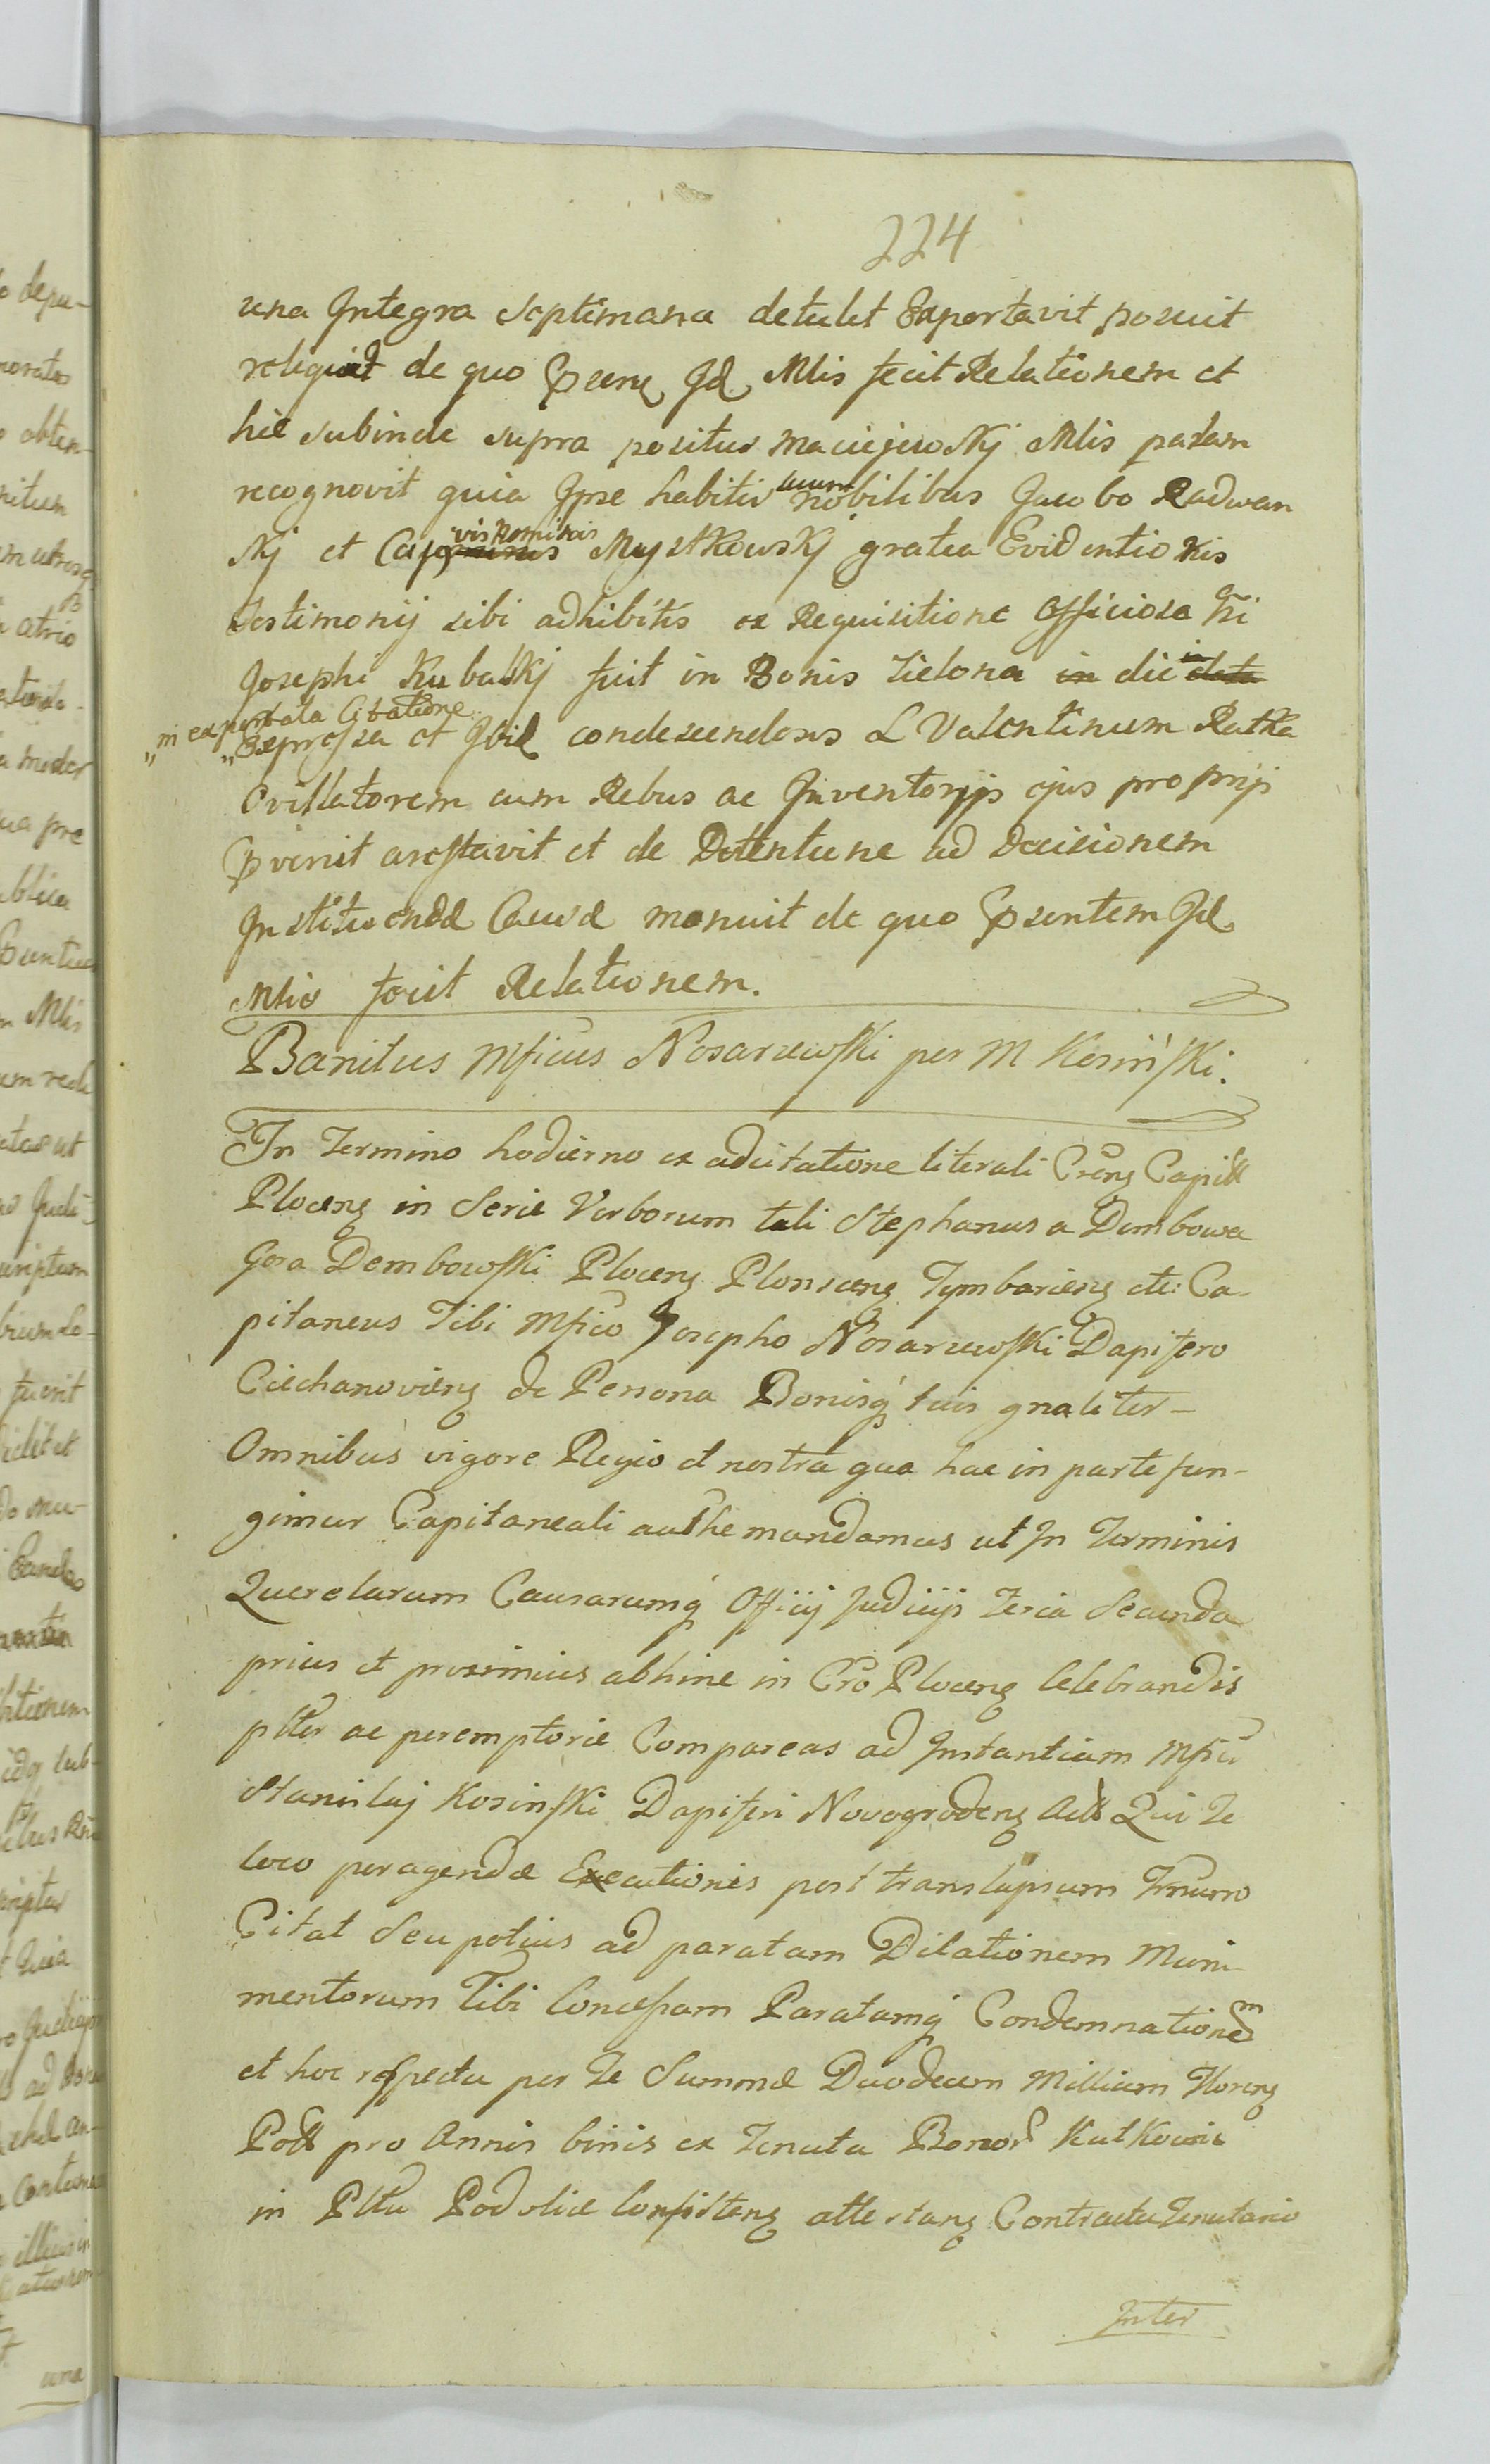 224
una Integra Septimana detulit Exportavit posuit
reliquit de quo Pssens Jd Mlis fecit Relationem et
hic subinde supra positus Maciejewskj Mlis palam
recognovit quia Ipse habitis secum nobilibus Jacobo Radwan
skj et vis Nominis Mystkowskj gratia Evidentioris
testimonij sibi adhibitis ex Requisitione Officiosa Gsi
Josephi Kubalskj fuit in Bonis Zielona in die in data
„m exportata Citatione
„Expressa et Ibid condescendens L Valentinum Ratka
Ovillatorem cum Rebus ac Inventorijs ejus proprijs
Pvenit arestavit et de Detentione ad Decisionem
Instituendæ Causæ monuit de quo Psentem Jd
Mlis fecit Relationem.
Banitus Mficus Nosarzewski per M Kosiński.
In Termino hodierno ex adcitatione literali Crens Capitt
Plocens in Serie Verborum tali Stephanus a Dembowa
Gora Dembowski Plocens Plonscens Tymbariens etc: Ca-
pitaneus Tibi Mfico Josepho Nosarzewski Dapifero
Ciechanoviens de Persona Bonisq tuis gnaliter-
Omnibus vigore Regio et nostra qua hac in parte fun-
gimur Capitaneali authe mandamus ut In Terminis
Querelarum Causarumq Officij Judicijs Feria Secunda
prius et proximius abhinc in Cro Plocens Celebrandis
plter ac peremptorie Compareas ad Instantiam Mfici
Stanislaj Kosinski Dapiferi Novogrodens Act Qui Te
loco peragendæ Executionis post translapsum Tmnum
Citat Seu potius ad paratam Dilationem Muni-
mentorum Tibi Concessam Paratamq Condemnationem
et hoc respectu per Te Summæ Duodecem Millium Florens
Poll pro Annis binis ex Tenuta Bonor Kutkowie
in Pltu Podoliæ Consistens attestans Contractu Tenutario
Inter